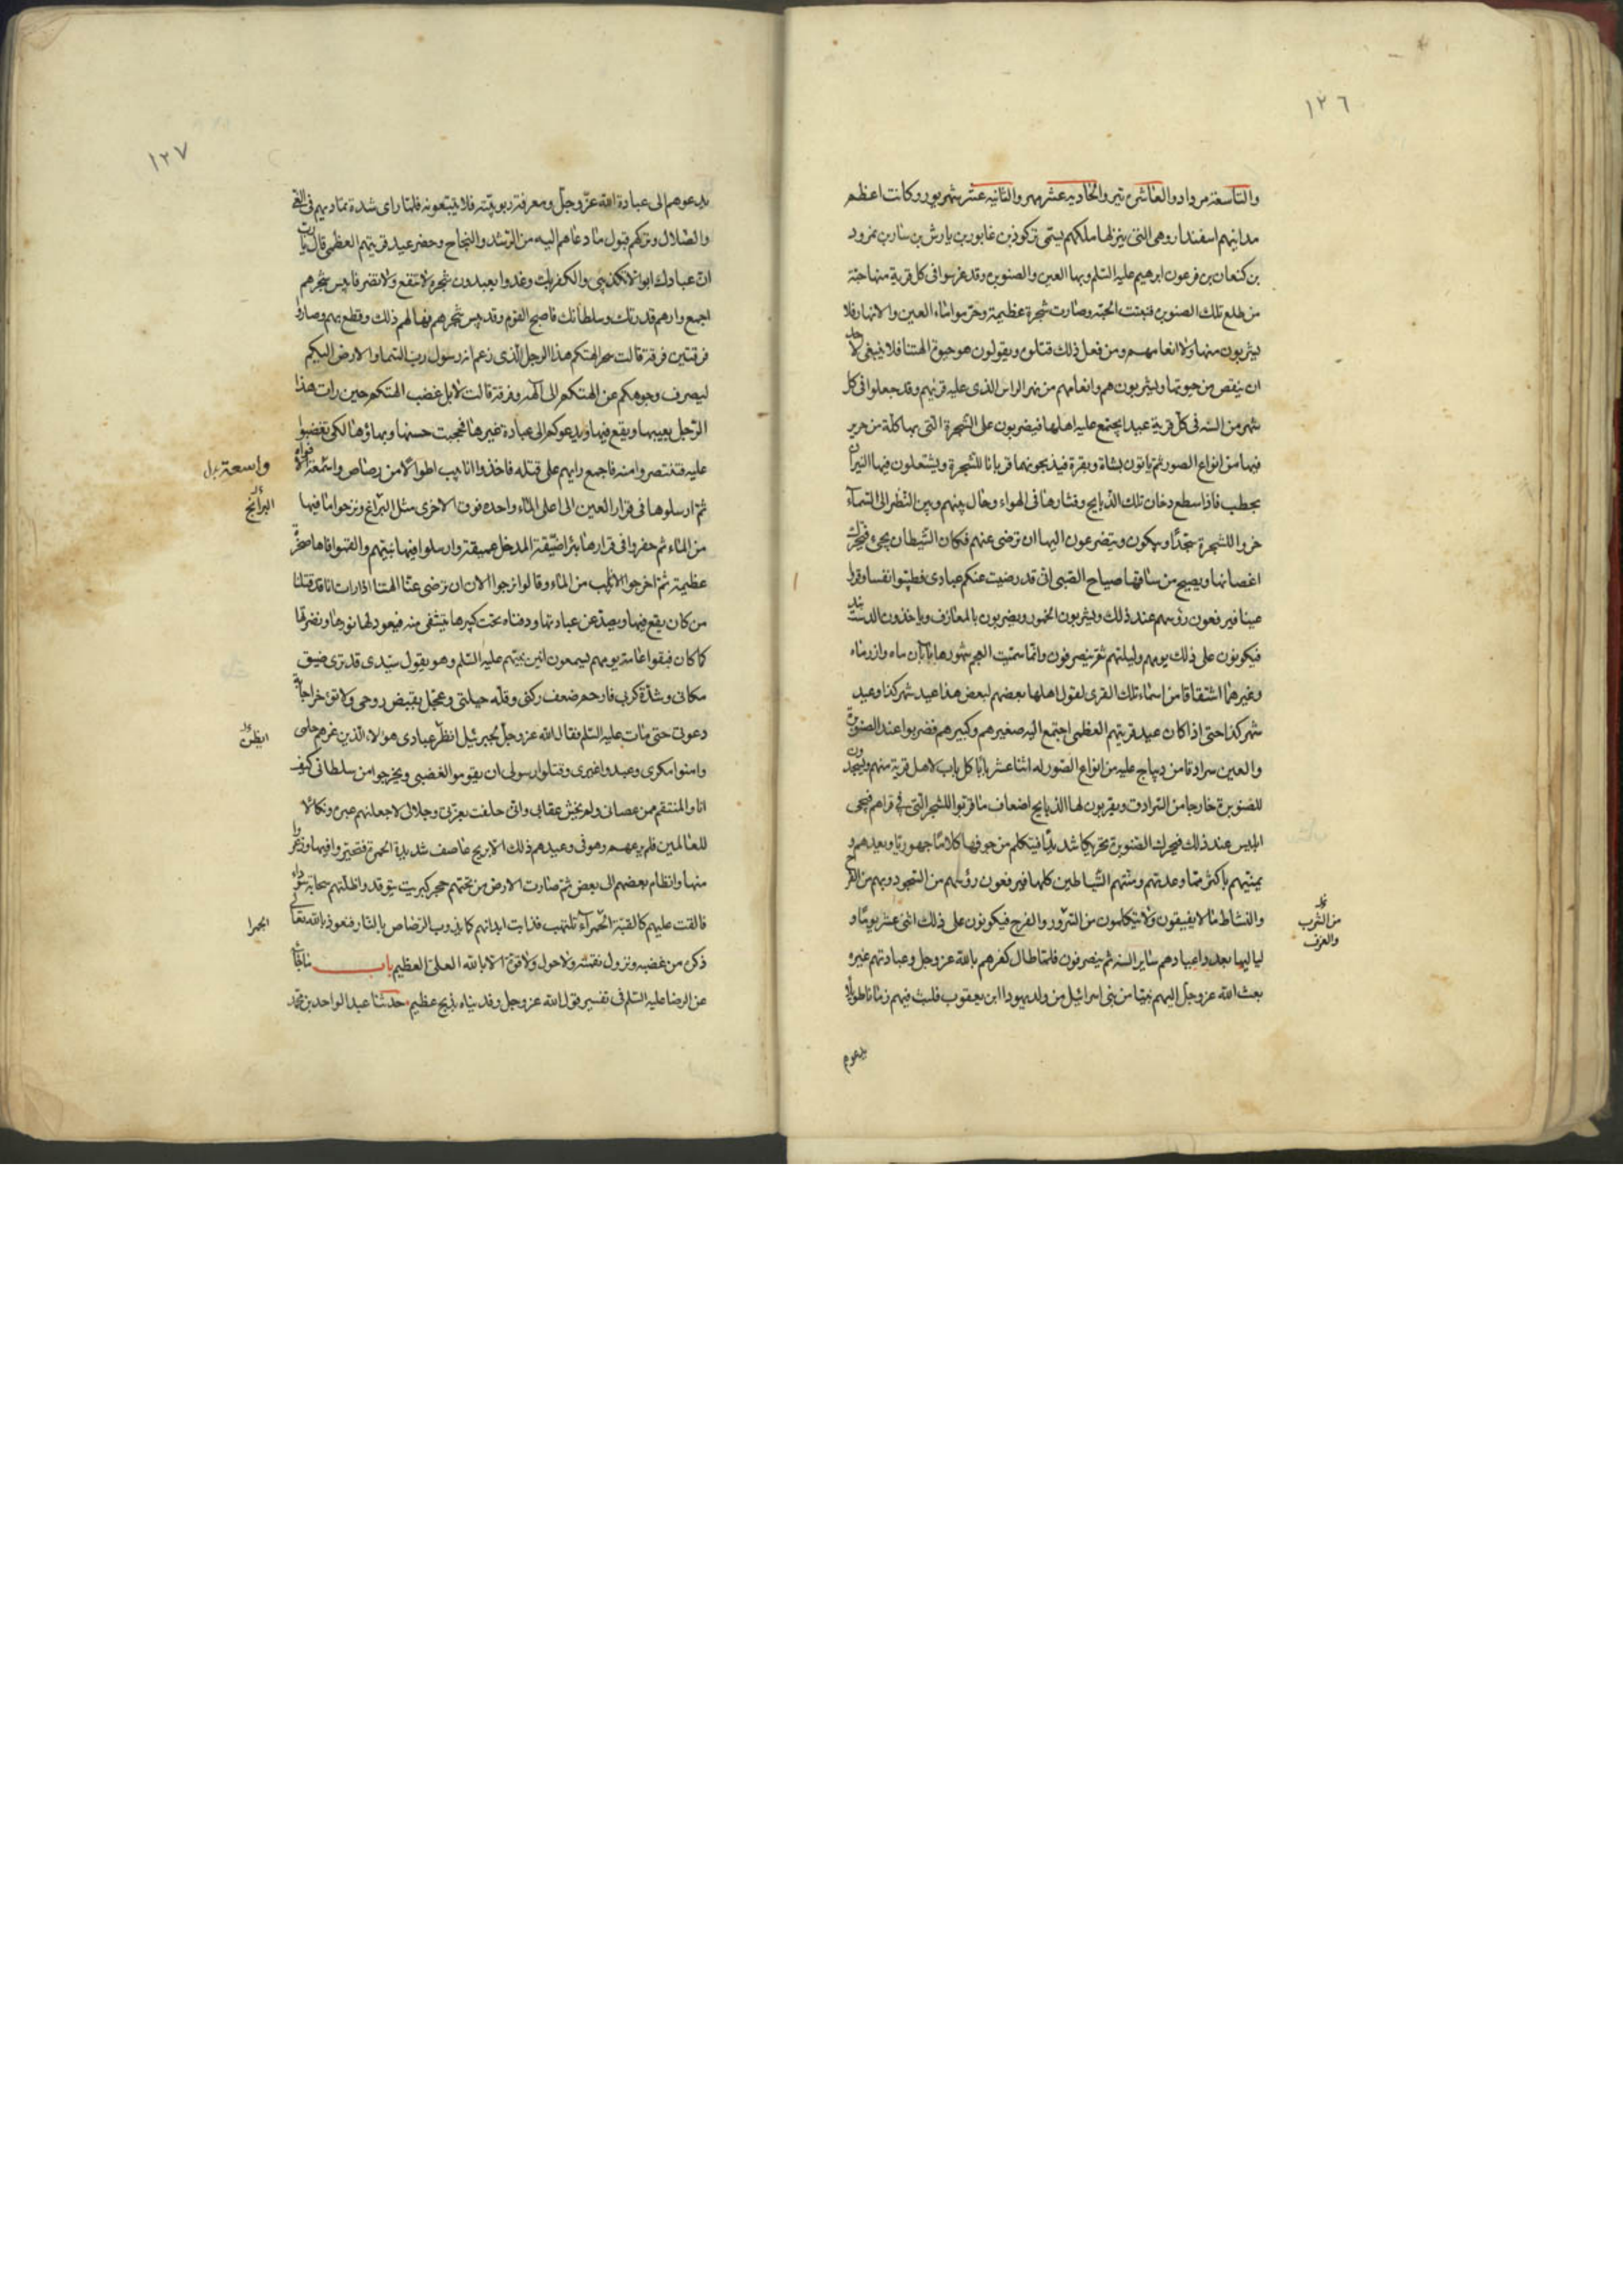 ١٢٦
والتاسعة مرداد والعاشرة تير والحادية عشر مهر والثانية عشر شهريور وكانت اعظم
مداينهم اسفندار وهي التي ينزلها ملكهم يسمى تركوذ بن غابور بن يارش بن سازن بن نمرود
بن كنعان بن فرعون ابرهيم عليه السلم وبها العين والصنوبرة وقد غرسوا في كل قرية منها حبة
من طلع تلك الصنوبرة فنبتت الحبة وصارت شجرة عظيمة وحرموا ماء العين والانهار فلا
يشربون منها ولا انعامهم ومن فعل ذلك قتلوه ويقولون هو حيوة الهتنا فلا ينبغي لاحد
ان ينقص من حيوتها ويشربون هم وانعامهم من نهر الراس الذي عليه قريهم وقد جعلوا في كل
شهر من السنة في كل قرية عيدا يجتمع عليه اهلها فيضربون على الشجرة التي بها كلة من حرير
فيها من انواع الصور ثم ياتون بشاة وبقرة فيذبحونهما قربانا للشجرة ويشتعلون فيها النيران
بحطب فاذا سطع دخان تلك الذبايح وقتارها في الهواء وحال بينهم وبين النظر الى السماء
خروا للشجرة سجدا ويبكون ويتضرعون اليها ان ترضى عنهم فكان الشيطان يجيء فيحرك
اغصانها ويصيح من ساقها صياح الصبي اني قد رضيت عنكم عبادى فطيبوا نفسا وقروا
عينا فيرفعون رؤسهم عند ذلك ويشربون الخمور ويضربون بالمعازف وياخذون الدستبند
فيكونون على ذلك يومهم وليلتهم ثم ينصرفون وانما سميت العجم شهورها بآبان ماه وازرماه
وغيرهما اشتقاقا من اسماء تلك القرى لقول اهلها بعضهم لبعض هذا عيد شهر كذا وعيد
شهر كذا حتى اذا كان عيد قريتهم العظمى اجتمع اليه صغيرهم وكبيرهم فضربوا عند الصنوبرة
والعين سرادقا من ديباج عليه من انواع الصور له اثنا عشر بابا كل باب لاهل قرية منهم ويسجدون
للصنوبرة خارجا من السرادق ويقربون لها الذبايح اضعاف ما قربوا للشجر التي في قراهم فيجي
ابليس عند ذلك فيحرك الصنوبرة تحريكا شديدا فيتكلم من جوفها كلاما جهوريا ويعدهم و
يمنيهم باكثر مما وعدتهم ومنتهم الشياطين كلها فيرفعون رؤسهم من السجود وبهم من الفرح
والنشاط ما لا يفيقون ولا يتكلمون من السرور والفرح فيكونون على ذلك اثنى عشر يوما و
من الشرب
والعزف
لياليها بعدد اعيادهم ساير السنة ثم ينصرفون فلما طال كفرهم بالله عز وجل وعبادتهم غيره
بعث الله عز وجل اليهم نبيا من بني اسرائيل من ولد يهودا ابن يعقوب فلبث فيهم زمانا طويلا
يدعوهم
١٢٧
يدعوهم الى عبادة الله عز وجل ومعرفة ربوبيته فلا يتبعونه فلما راى شدة تماديهم في الغي
والضلال وتركهم قبول ما دعاهم اليه من الرشد والنجاح وحضر عيد قريتهم العظمى قال يا رب
ان عبادك ابوا الا تكذيبي والكفر بك وغدوا يعبدون شجرة لا تنفع ولا تضر فايبس شجرهم
اجمع وارهم قدرتك وسلطانك فاصبح القوم وقد يبس شجرهم فهالهم ذلك وقطع بهم وصاروا
فرقتين فرقة قالت سحر الهتكم هذا الرجل الذى زعم انه رسول رب السماء والارض اليكم
ليصرف وجوهكم عن الهتكم الى الهه وفرقة قالت لا بل غضب الهتكم حين رات هذا
الرجل يعيبها ويقع فيها ويدعوكم الى عبادة غيرها فحجبت حسنها وبهاؤها لكي تغضبوا
عليه فتنتصروا منه فاجمع رايهم على قتله فاخذوا انابيب اطوالا من رصاص واسعة الافواه
واسعة بدل
ثم ارسلوها في قرار العين الى اعلى الماء واحدة فوق الاخرى مثل البرانج ونزحوا ما فيها
البرانج
من الماء ثم حفروا في قرارها بئرا ضيقة المدخل عميقة وارسلوا فيها نبيهم والقموا فاها صخرة
عظيمة ثم اخرجوا الانابيب من الماء وقالوا نرجوا الان ان ترضى عنا الهتنا اذا رات انا قد قتلنا
من كان يقع فيها ويصد عن عبادتها ودفناه تحت كبيرها يتشفى منه فيعود لها نورها ونضرتها
كما كان فبقوا عامة يومهم يسمعون انين نبيهم عليه السلم وهو يقول سيدى قد ترى ضيق
مكاني وشدة كربي فارحم ضعف ركني وقلة حيلتي وعجل بقبض روحي ولا تؤخر اجابة
دعوتي حتى مات عليه السلم فقال الله عز وجل لجبرئيل انظر عبادى هؤلاء الذين غرهم حلمى
ايظن
وامنوا مكرى وعبدوا غيرى وقتلوا رسولى ان يقوموا لغضبي ويخرجوا من سلطاني كيف
انا والمنتقم ممن عصاني ولم يخش عقابي واني حلفت بعزتي وجلالى لاجعلنهم عبرة ونكالا
للعالمين فلم يرعهم وهو في عيدهم ذلك الا بريح عاصف شديدة الحمرة فتحيروا فيها وذعروا
منها وانظام بعضهم الى بعض ثم صارت الارض من تحتهم حجر كبريت يتوقد واظلتهم سحابة سوداء
فالقت عليهم كالقبة الحمراء تلتهب فذابت ابدانهم كما يذوب الرصاص بالنار فنعوذ بالله تعالى
الجمرا
ذكره من غضبه ونزول نقمته ولا حول ولا قوة الا بالله العلي العظيم باب ما جاء
عن الرضا عليه السلم في تفسير قول الله عز وجل وفديناه بذبح عظيم حدثنا عبد الواحد بن محمد